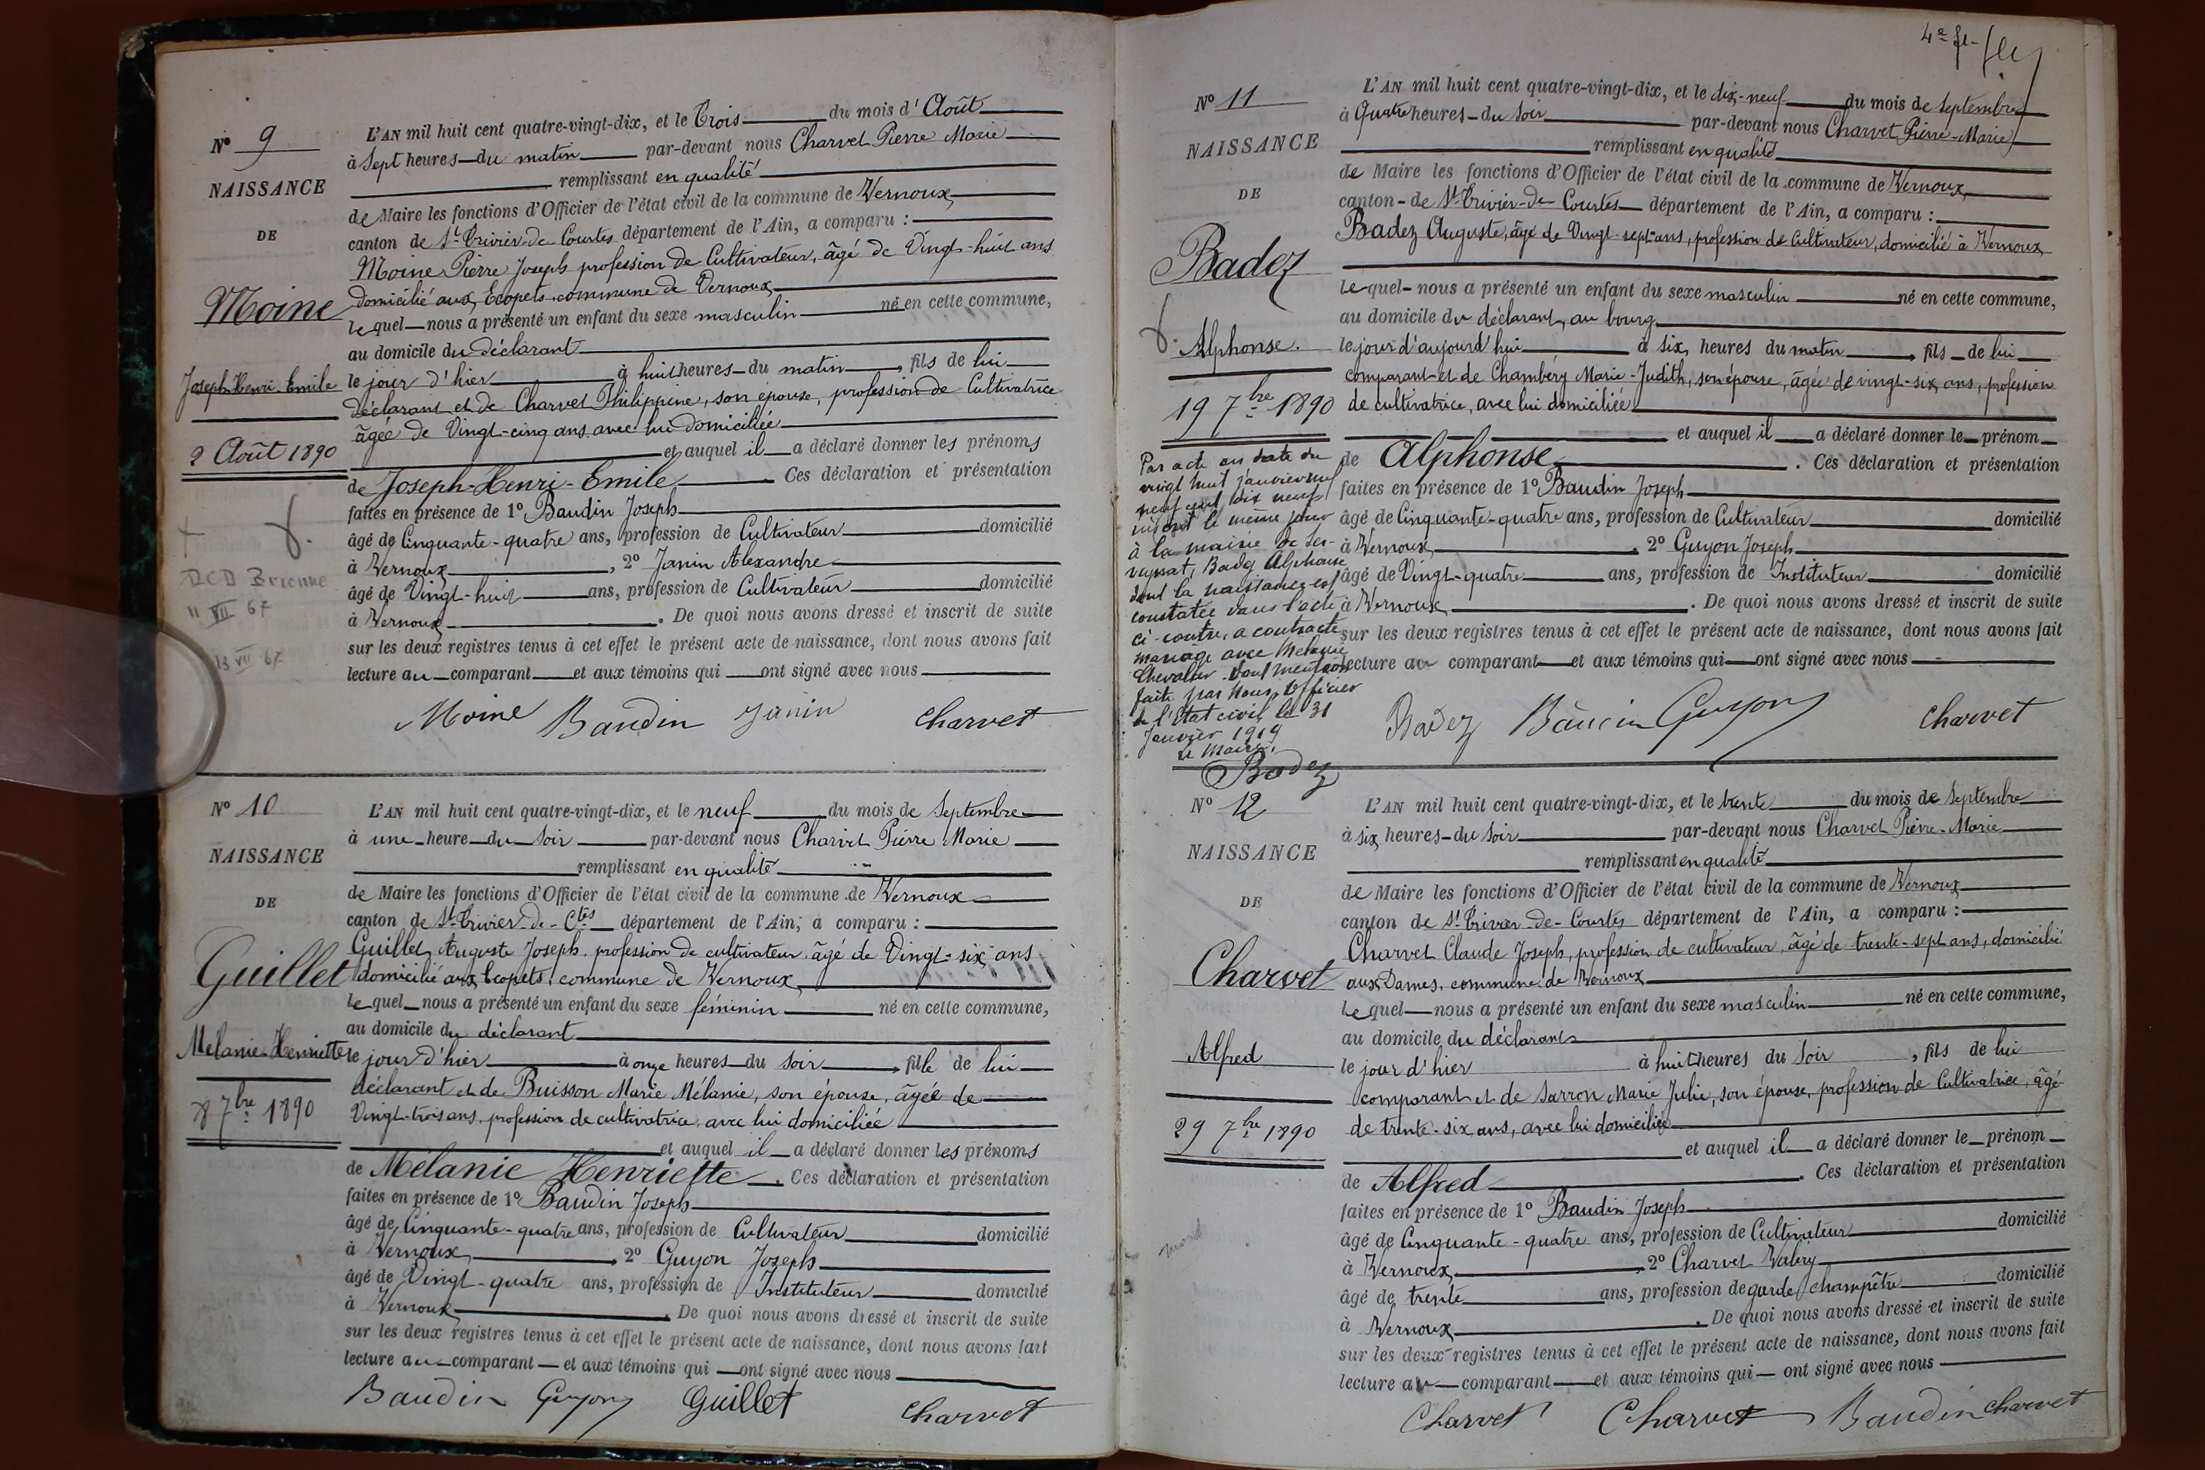 Nº 9
NAISSANCE
DE
Moine
Joseph-Henri-Emile
2 Août 1890
DCD Brienne
11 VII 67
13 VII 67
L'AN mil huit cent quatre-vingt-dix, et le Trois du mois d'Août
à Sept heures du matin par-devant nous Charvet Pierre Marie
remplissant en qualité
de Maire les fonctions d'Officier de l'état civil de la commune de Vernoux
canton de St Trivier-de-Courtes département de l'Ain, a comparu :
Moine Pierre Joseph profession de Cultivateur, âgé de Vingt-huit ans
domicilié aux Ecopets commune de Vernoux
lequel nous a présenté un enfant du sexe masculin né en cette commune,
au domicile du déclarant
le jour d'hier à huit heures du matin, fils de lui
déclarant et de Charvet Philippine, son épouse, profession de Cultivatrice
âgée de Vingt-cinq ans avec lui domiciliée
et auquel il a déclaré donner les prénoms
de Joseph-Henri-Emile. Ces déclaration et présentation
faites en présence de 1º Baudin Joseph
âgé de Cinquante-quatre ans, profession de Cultivateur domicilié
à Vernoux, 2º Janin Alexandre
âgé de Vingt-huit ans, profession de Cultivateur domicilié
à Vernoux. De quoi nous avons dressé et inscrit de suite
sur les deux registres tenus à cet effet le présent acte de naissance, dont nous avons fait
lecture au comparant et aux témoins qui ont signé avec nous
Moine Baudin Janin Charvet
Nº 10
NAISSANCE
DE
Guillet
Mélanie-Henriette
8 7bre 1890
L'AN mil huit cent quatre-vingt-dix, et le neuf du mois de Septembre
à une heure du soir par-devant nous Charvet Pierre Marie
remplissant en qualité
de Maire les fonctions d'Officier de l'état civil de la commune de Vernoux
canton de St Trivier-de-Ctes département de l'Ain, a comparu :
Guillet Auguste Joseph, profession de cultivateur, âgé de Vingt-six ans
domicilié aux Ecopets, commune de Vernoux
lequel nous a présenté un enfant du sexe féminin né en cette commune,
au domicile du déclarant
le jour d'hier à onze heures du soir, fille de lui
déclarant et de Buisson Marie Mélanie, son épouse, âgée de
Vingt-trois ans, profession de cultivatrice, avec lui domiciliée
et auquel il a déclaré donner les prénoms
de Mélanie Henriette. Ces déclaration et présentation
faites en présence de 1º Baudin Joseph
âgé de Cinquante-quatre ans, profession de Cultivateur domicilié
à Vernoux, 2º Guyon Joseph
âgé de Vingt-quatre ans, profession de Instituteur domicilié
à Vernoux. De quoi nous avons dressé et inscrit de suite
sur les deux registres tenus à cet effet le présent acte de naissance, dont nous avons fait
lecture au comparant et aux témoins qui ont signé avec nous
Baudin Guyon Guillet Charvet
4e f
Nº 11
NAISSANCE
DE
Badez
Alphonse
19 7bre 1890
Par acte en date du
vingt huit janvier mil
neuf cent dix neuf
inscrit le même jour
à la mairie de
Badez Alphonse
dont la naissance est
constatée dans l'acte
ci-contre, a contracté
mariage avec Mélanie
Chevalier. Dont mention
faite par nous Officier
de l'Etat civil le 31
Janvier 1919
Le Maire,
Badez
L'AN mil huit cent quatre-vingt-dix, et le dix-neuf du mois de Septembre
à Quatre heures du soir par-devant nous Charvet Pierre-Marie
remplissant en qualité
de Maire les fonctions d'Officier de l'état civil de la commune de Vernoux
canton de St Trivier-de-Courtes département de l'Ain, a comparu :
Badez Auguste, âgé de Vingt-sept ans, profession de Cultivateur, domicilié à Vernoux
lequel nous a présenté un enfant du sexe masculin né en cette commune,
au domicile du déclarant, au bourg
le jour d'aujourd'hui à six heures du matin, fils de lui
comparant et de Chambéry Marie-Judith, son épouse, âgée de vingt-six ans, profession
de cultivatrice, avec lui domiciliée
et auquel il a déclaré donner le prénom
de Alphonse. Ces déclaration et présentation
faites en présence de 1º Baudin Joseph
âgé de Cinquante-quatre ans, profession de Cultivateur domicilié
à Vernoux, 2º Guyon Joseph
âgé de Vingt-quatre ans, profession de Instituteur domicilié
à Vernoux. De quoi nous avons dressé et inscrit de suite
sur les deux registres tenus à cet effet le présent acte de naissance, dont nous avons fait
lecture au comparant et aux témoins qui ont signé avec nous
Badez Baudin Guyon Charvet
Nº 12
NAISSANCE
DE
Charvet
Alfred
29 7bre 1890
L'AN mil huit cent quatre-vingt-dix, et le trente du mois de Septembre
à six heures du soir par-devant nous Charvet Pierre-Marie
remplissant en qualité
de Maire les fonctions d'Officier de l'état civil de la commune de Vernoux
canton de St Trivier-de-Courtes département de l'Ain, a comparu :
Charvet Claude Joseph, profession de cultivateur, âgé de trente-sept ans, domicilié
aux Dames, commune de Vernoux
lequel nous a présenté un enfant du sexe masculin né en cette commune,
au domicile du déclarant
le jour d'hier à huit heures du soir, fils de lui
comparant et de Sarron Marie Julie, son épouse, profession de Cultivatrice, âgé
de trente-six ans, avec lui domiciliée
et auquel il a déclaré donner le prénom
de Alfred. Ces déclaration et présentation
faites en présence de 1º Baudin Joseph
âgé de Cinquante-quatre ans, profession de Cultivateur domicilié
à Vernoux, 2º Charvet Valéry
âgé de trente ans, profession de garde champêtre domicilié
à Vernoux. De quoi nous avons dressé et inscrit de suite
sur les deux registres tenus à cet effet le présent acte de naissance, dont nous avons fait
lecture au comparant et aux témoins qui ont signé avec nous
Charvet Charvet Baudin Charvet